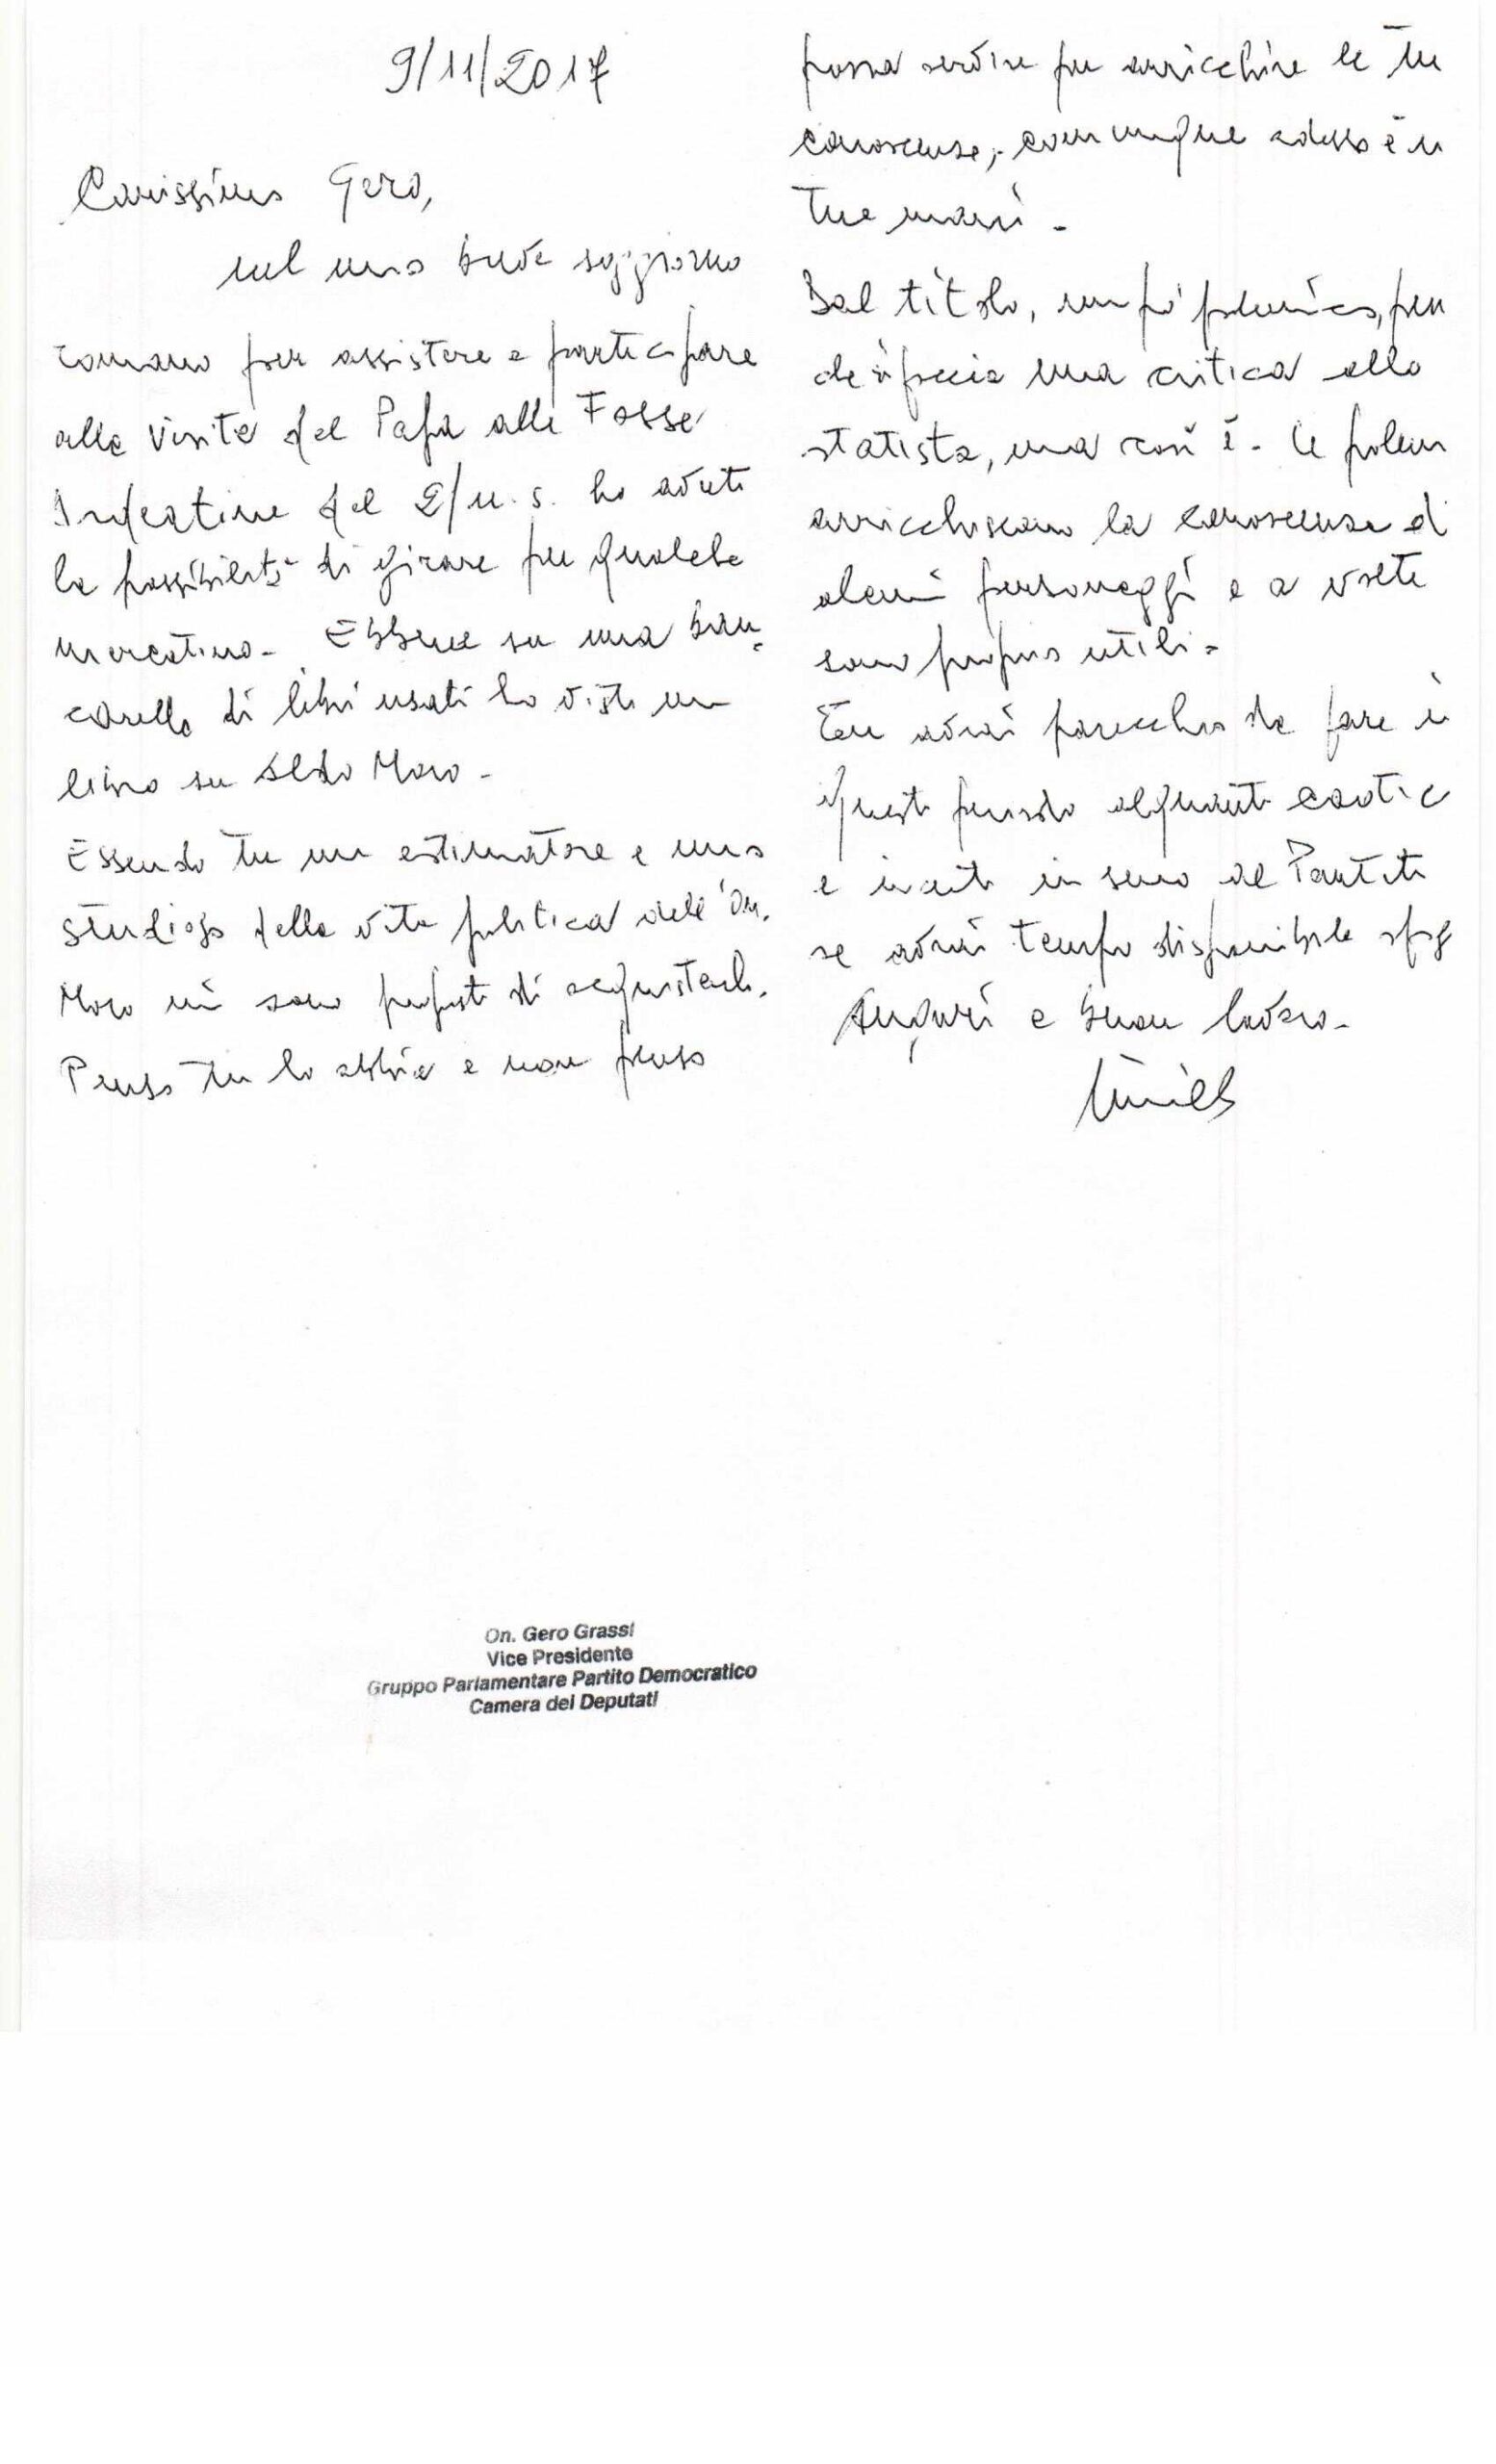 9/11/2017
Carissimo Gero,
nel mio breve soggiorno
romano per assistere e partecipare
alla visita del Papa alle Fosse
Ardeatine del 2/u.s. ho avuto
la possibilità di girare per qualche
mercatino. Ebbene su una ban=
carella di libri usati ho visto un
libro su Aldo Moro.
Essendo tu un estimatore e uno
studioso della vita politica dell'On.
Moro mi sono di acquistarlo.
Penso tu lo abbia e non penso
possa servire per arricchire le tu
conoscenze, comunque adesso è in
tue mani.
Dal titolo, un po' polemico,
una critica allo
statista, ma così è. Le polem
arricchiscono la conoscenza di
alcuni personaggi e a volte
sono proprio utili.
Tu avrai parecchio da fare in
questo periodo alquanto caotic
e in seno al Partito
se avrai tempo disponibile
Auguri e buon lavoro.
On. Gero Grassi
Vice Presidente
Gruppo Parlamentare Partito Democratico
Camera dei Deputati